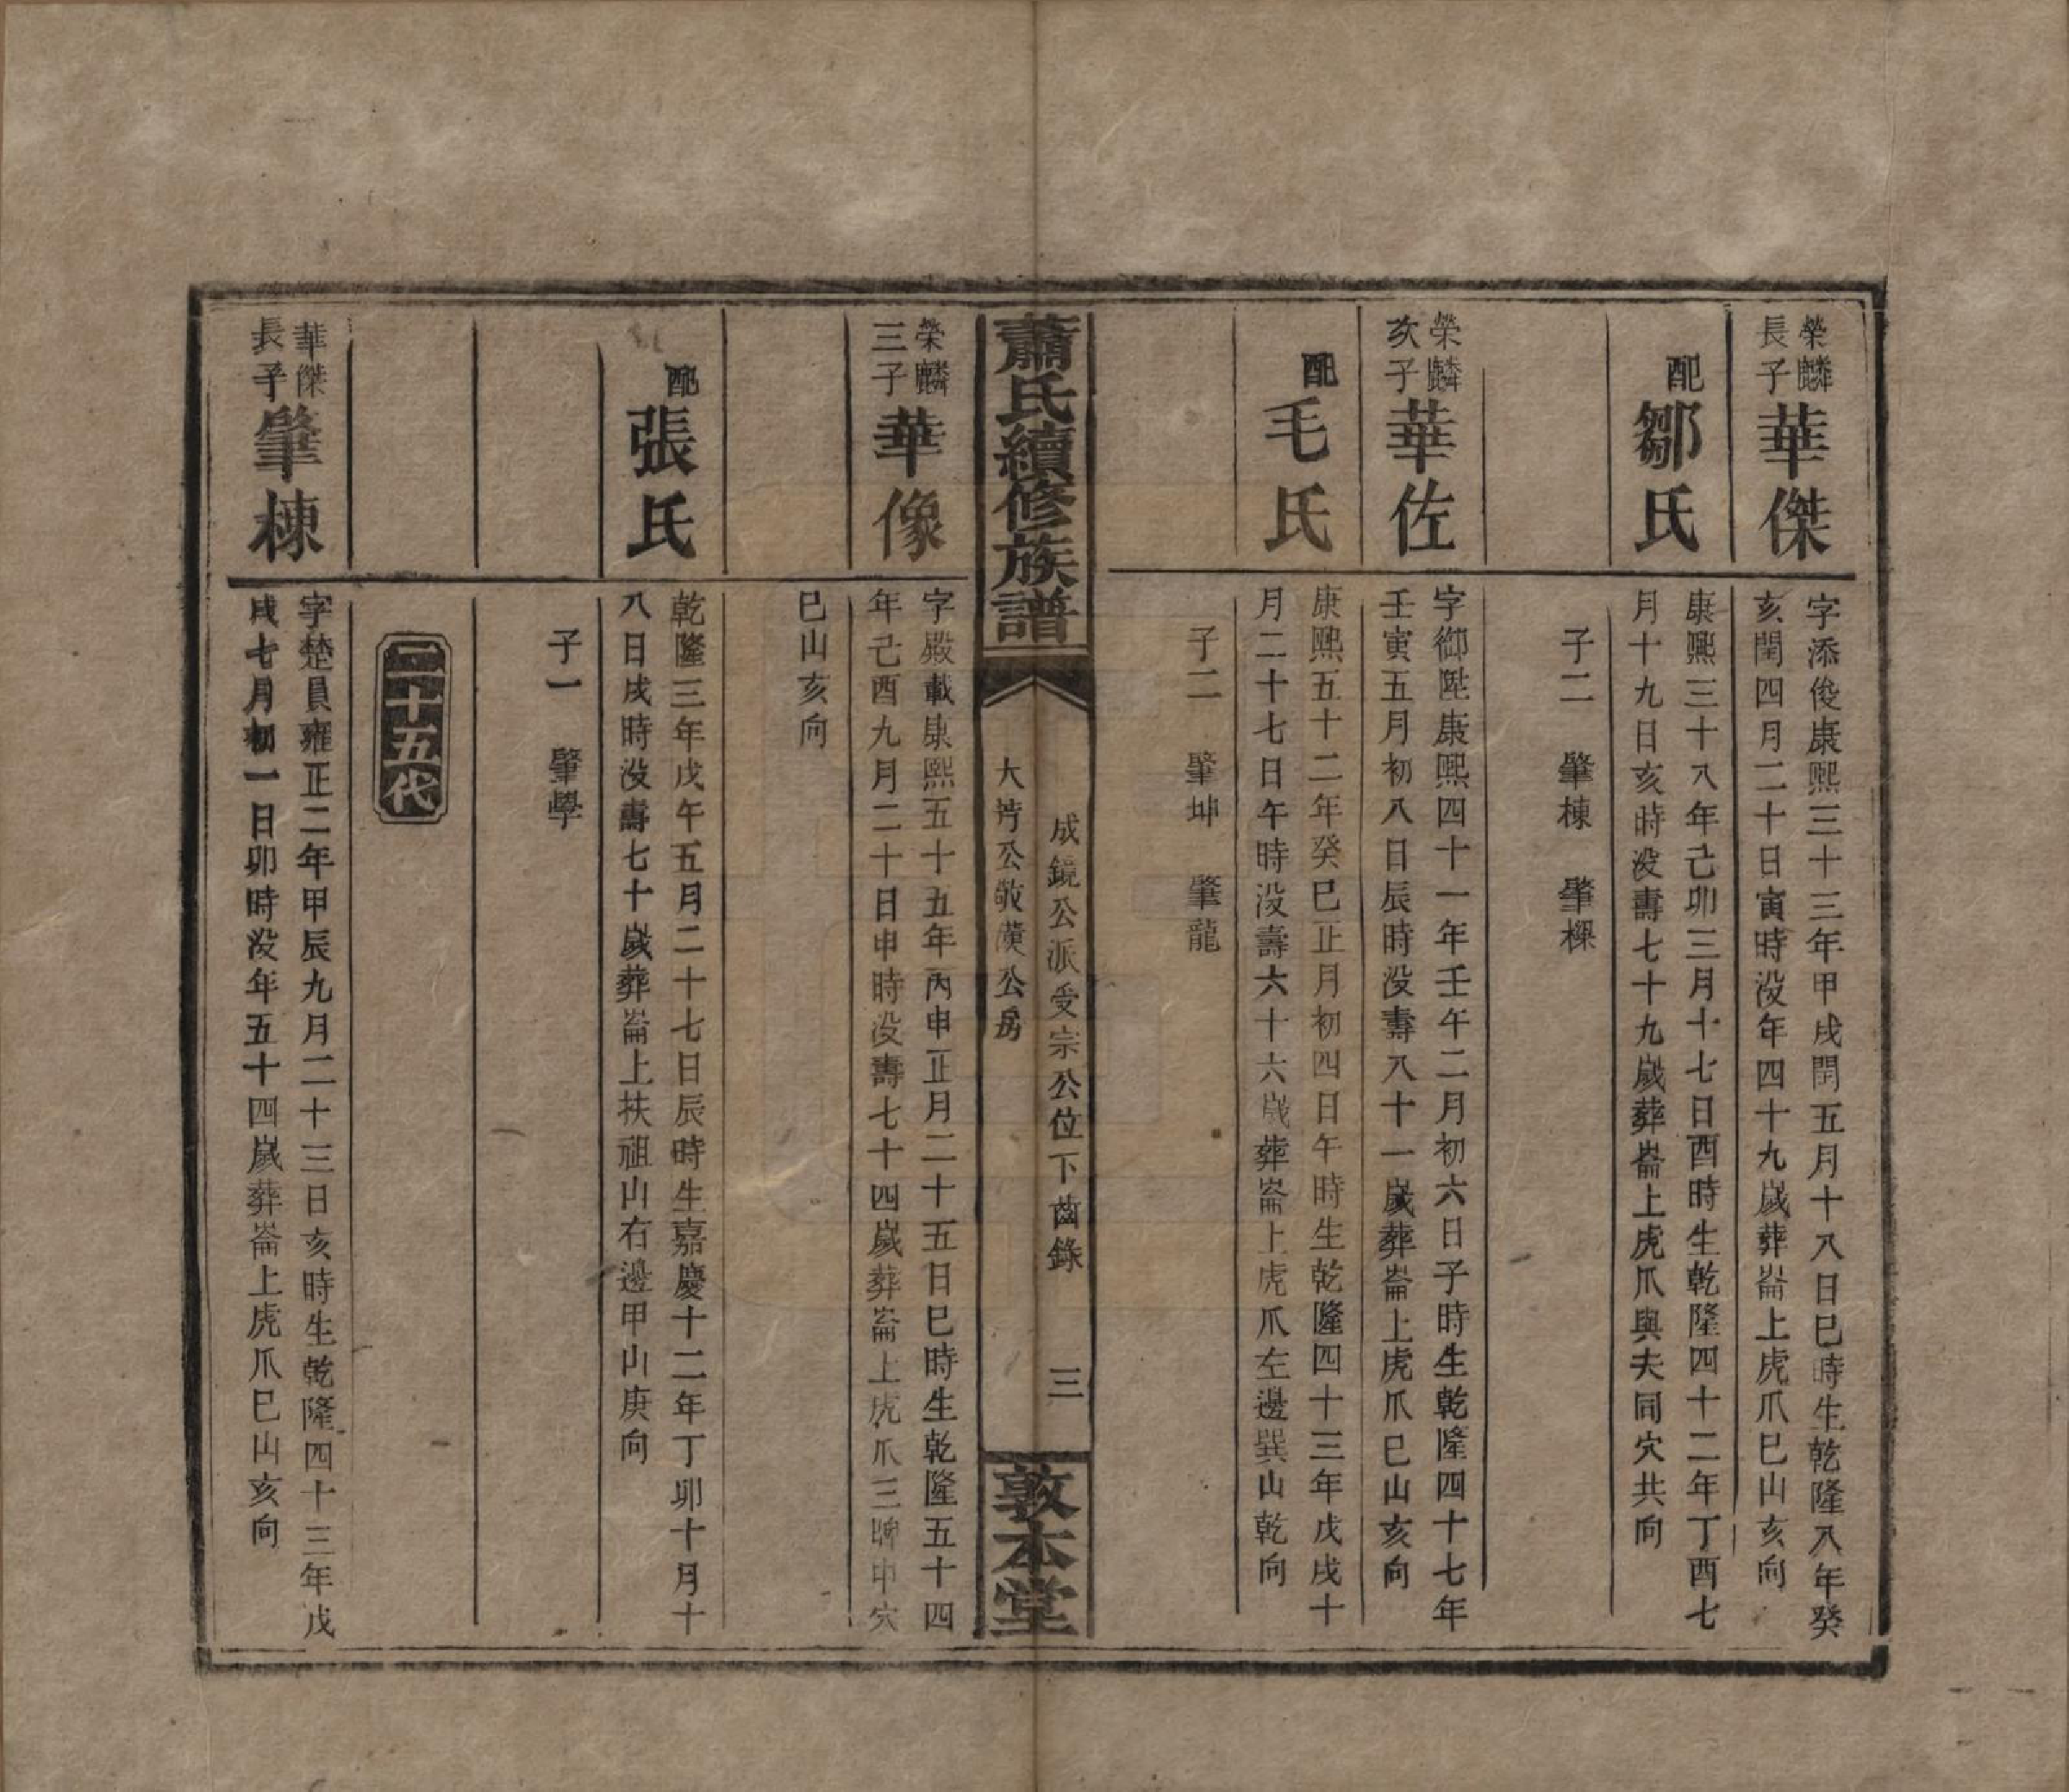 榮麟
長子
華傑
字添俊康熙三十三年甲戌閏五月十八日巳時生乾隆八年癸
亥閏四月二十日寅時没年四十九歲葬崙上虎爪巳山亥向
配
鄒氏
康熙三十八年己卯三月十七日酉時生乾隆四十二年丁酉七
月十九日亥時没壽七十九歲葬崙上虎爪與夫同穴共向
子二 肇棟 肇樑
榮麟
次子
華佐
字御陞康熙四十一年壬午二月初六日子時生乾隆四十七年
壬寅五月初八日辰時没壽八十一歲葬崙上虎爪巳山亥向
配
毛氏
康熙五十二年癸巳正月初四日午時生乾隆四十三年戊戌十
月二十七日午時没壽六十六歲葬崙上虎爪左邊巽山乾向
子二 肇坤 肇龍
蕭氏續修族譜
成鏡公派受宗公位下齒錄
大芳公敬公房
三
敦本堂
榮麟
三子
華像
字殿載康熙五十五年丙申正月二十五日巳時生乾隆五十四
年己酉九月二十日申時没壽七十四歲葬崙上虎爪三牌中穴
巳山亥向
配
張氏
乾隆三年戊午五月二十七日辰時生嘉慶十二年丁卯十月十
八日戌時没壽七十歲葬崙上扶祖山右邊甲山庚向
子一 肇學
二十五代
華傑
長子
肇棟
字楚員雍正二年甲辰九月二十三日亥時生乾隆四十三年戊
戌七月初一日卯時没年五十四歲葬崙上虎爪巳山亥向